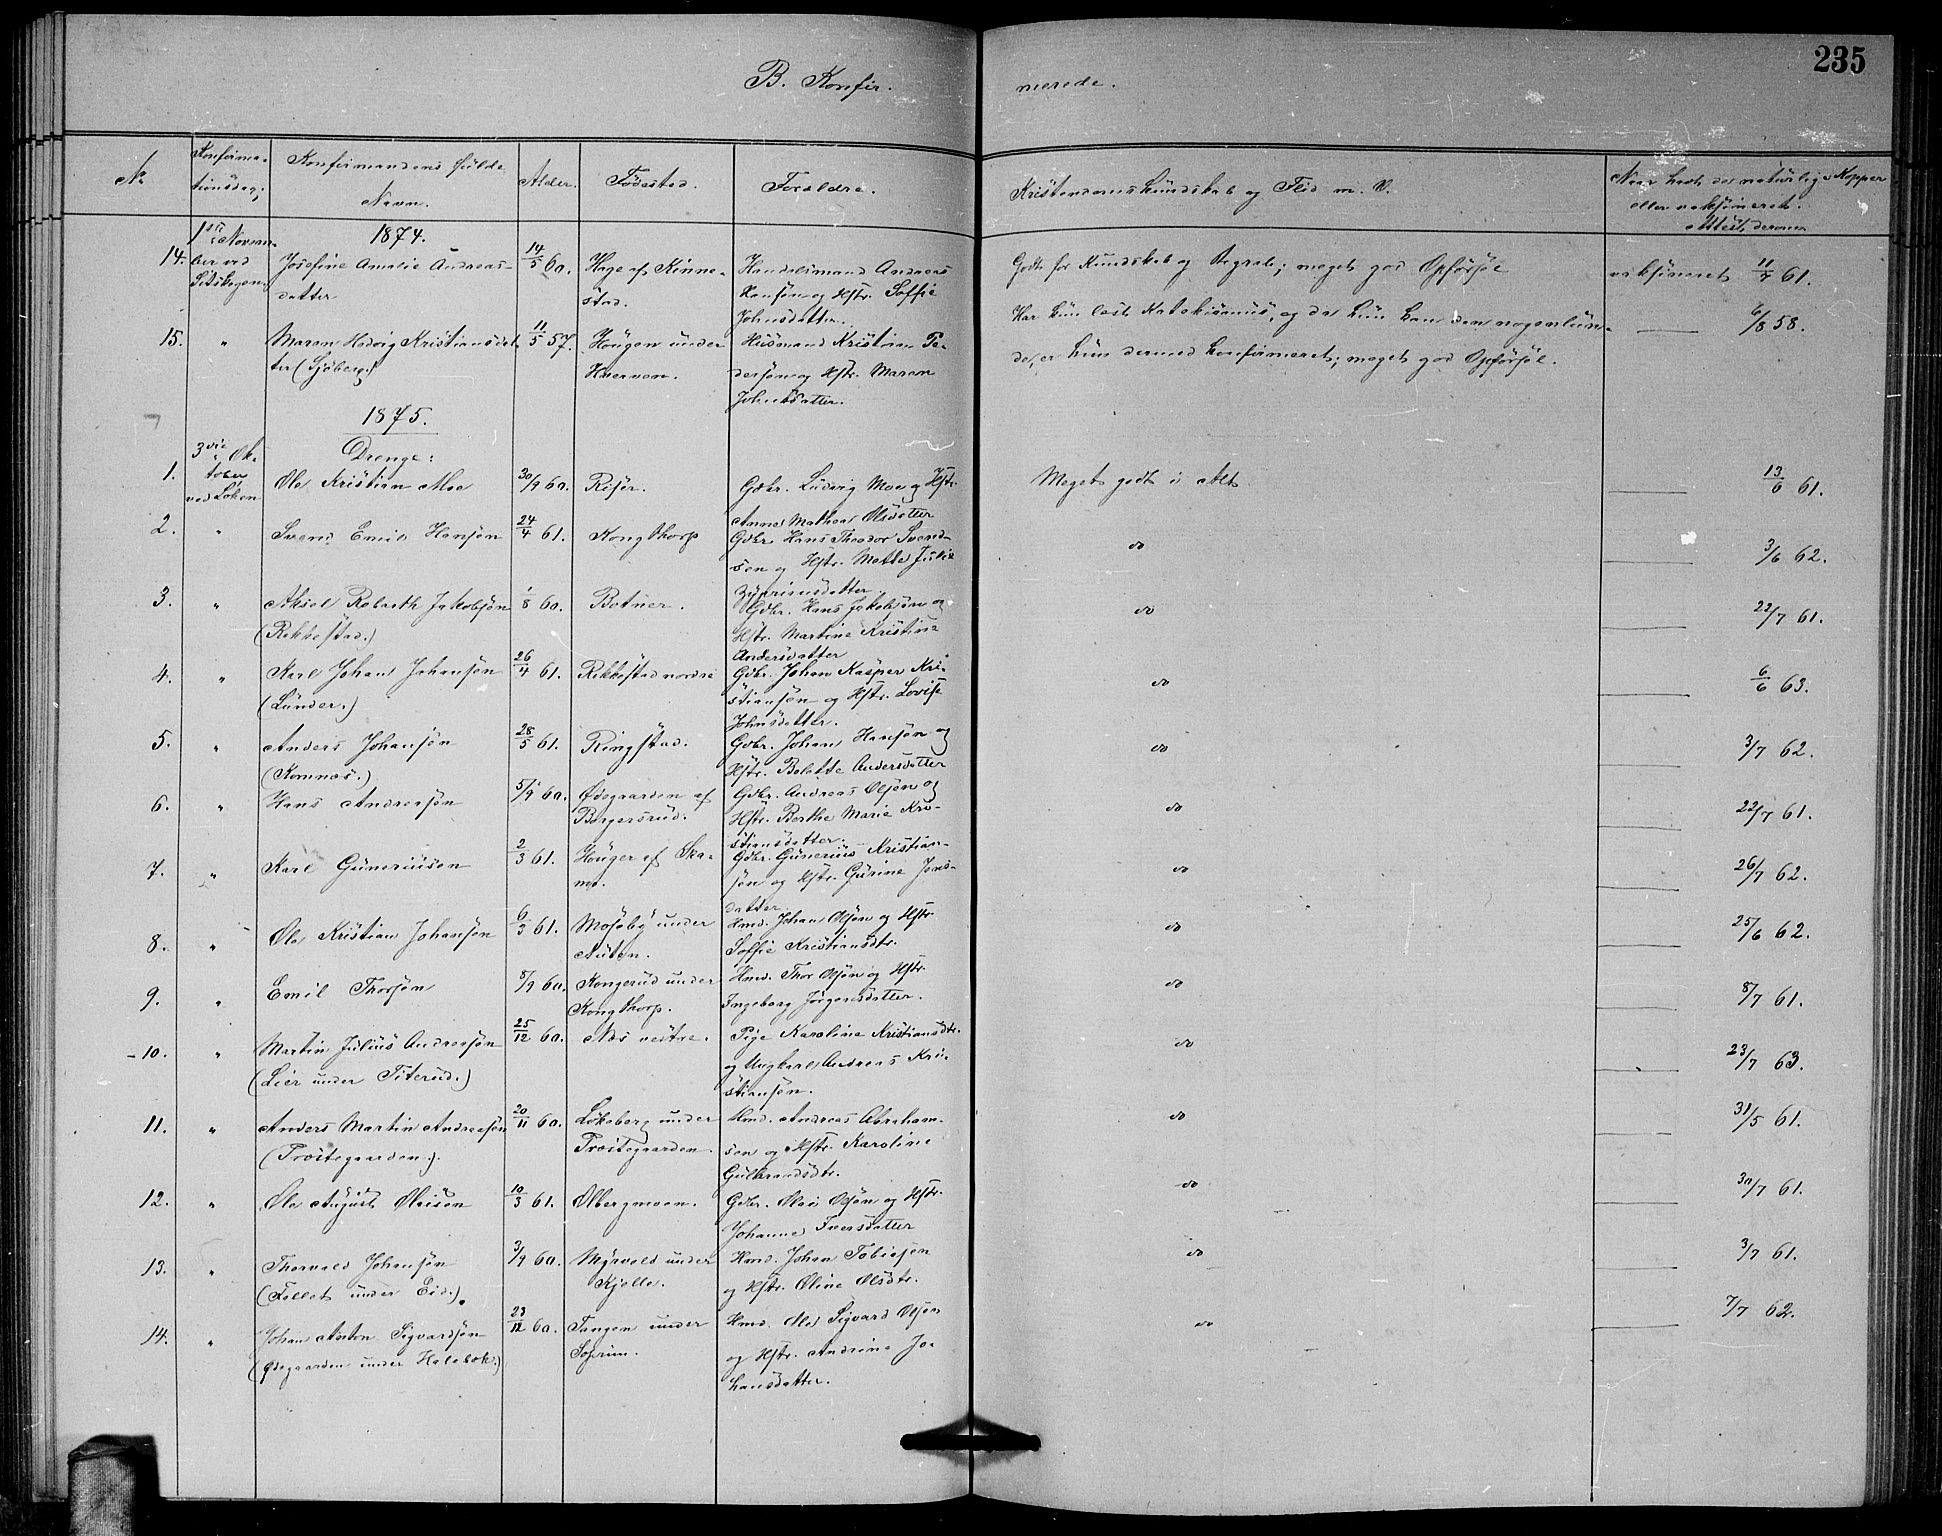 235
B. Konfir-
merede.
No
Konfirma-
tionsdag;
Konfirmandens fulde
Navn.
Alder.
Fødested.
Forældre.
Kristendomskundskab og Flid m. V.
Naar havt de naturlige Kopper
eller vaksineret.
Attest derom
1874.
14. 1ste Novem-
ber ved
Josefine Amalie Andreas-
datter
14/5 60.
Hage af Kinne-
stad.
Handelsmand Andreas
Hansøn og Hstr. Soffie
Johnsdatter.
Godt for Kundskab og Begreb; meget god Opførsel
vaksineret 11/7 61.
15. "
Maren Hedvig Kristiansdat-
ter (Sjøberg)
11/5 57.
Haugen under
Huerven.
Husmand Kristian Pe-
dersøn og Hstr. Maren
Johnsdatter.
Har kun læst Katekismus, og da hun kan den nogenlun-
de, er hun dermed konfirmeret; meget god Opførsel.
6/8 58.
1875.
Drenge:
1. 3die Ok-
tober
ved Løken
Ole Kristian Moe
30/9 60.
Risør.
Gdbr. Ludvig Moe og Hstr.
Anne Mathea Olsdatter
Meget godt i Alt
13/6 61.
2. "
Svend Emil Hansøn
24/4 61.
Kongthorp
Gdbr. Hans Theodor Svend-
sen og Hstr. Mette Julie
Zyprimsdatter.
do
3/6 62.
3. "
Aksel Robarth Jakobsøn
(Rekkestad.)
1/8 60.
Botner.
Gdbr. Hans Jakobsøn og
Hstr. Martine Kristine
Andersdatter
do
22/7 61.
4. "
Karl Johan Johansøn
(Lunder.)
26/4 61.
Rekkestad nordre
Gdbr. Johan Kasper Kri-
stiansøn og Hstr. Lovise
Johnsdatter.
do
6/6 63.
5. "
Anders Johansøn
(Komnæs.)
28/5 61.
Ringstad.
Gdbr. Johan Hansøn og
Hstr. Bolette Andersdatter
do
3/7 62.
6. "
Hans Andreasøn
5/9 60.
Ødegaarden af
Børgersrud.
Gdbr. Andreas Olsøn og
Hstr. Berthe Marie Kri-
stiansdatter.
do
22/7 61.
7. "
Karl Guneriusøn
2/3 61.
Houger af Ska-
mo.
Gdbr. Gunerius Kristian-
søn og Hstr. Gurine Jens-
datter.
do
26/7 62.
8. "
Ole Kristian Johansøn
6/3 61.
Mosøby under
Auten.
Hmd. Johan Olsøn og Hstr.
Soffie Kristiansdtr.
do
25/6 62.
9. "
Emil Thorsøn
8/9 60.
Kongerud under
Kongthorp.
Hmd. Thor Olsøn og Hstr.
Ingeborg Jørgensdatter.
do
8/7 61.
10. "
Martin Julius Andreasøn
(Lier under Titerud.)
25/12 60.
Næs vestre.
Pige Karoline Kristiansdtr.
og Ungkarl Andreas Kri-
stiansøn.
do
23/7 63.
11. "
Anders Martin Andreasøn
(Præstegaarden.)
20/11 60.
Løkeberg under
Præstegaarden.
Hmd. Andreas Abraham-
sen og Hstr. Karoline
Gulbrandsdtr.
do
31/5 61.
12. "
Ole August Oleisøn
10/3 61.
Olbergmoen.
Gdbr. Olei Olsøn og Hstr.
Johanne Iversdatter
do
30/7 61.
13. "
Thorvald Johansøn
(Fallet under Eid.)
3/9 60.
Myrvold under
Kjelle.
Hmd. Johan Tobiasøn
og Hstr. Oline Olsdtr.
do
3/7 61.
14. "
Johan Anton Sigvardsøn
(Ødegaarden under Halebøk.)
23/12 60.
Tangen under
Soprim.
Hmd. Ole Sigvard Olsøn
og Hstr. Andrine Jo-
hansdatter.
do
7/7 62.